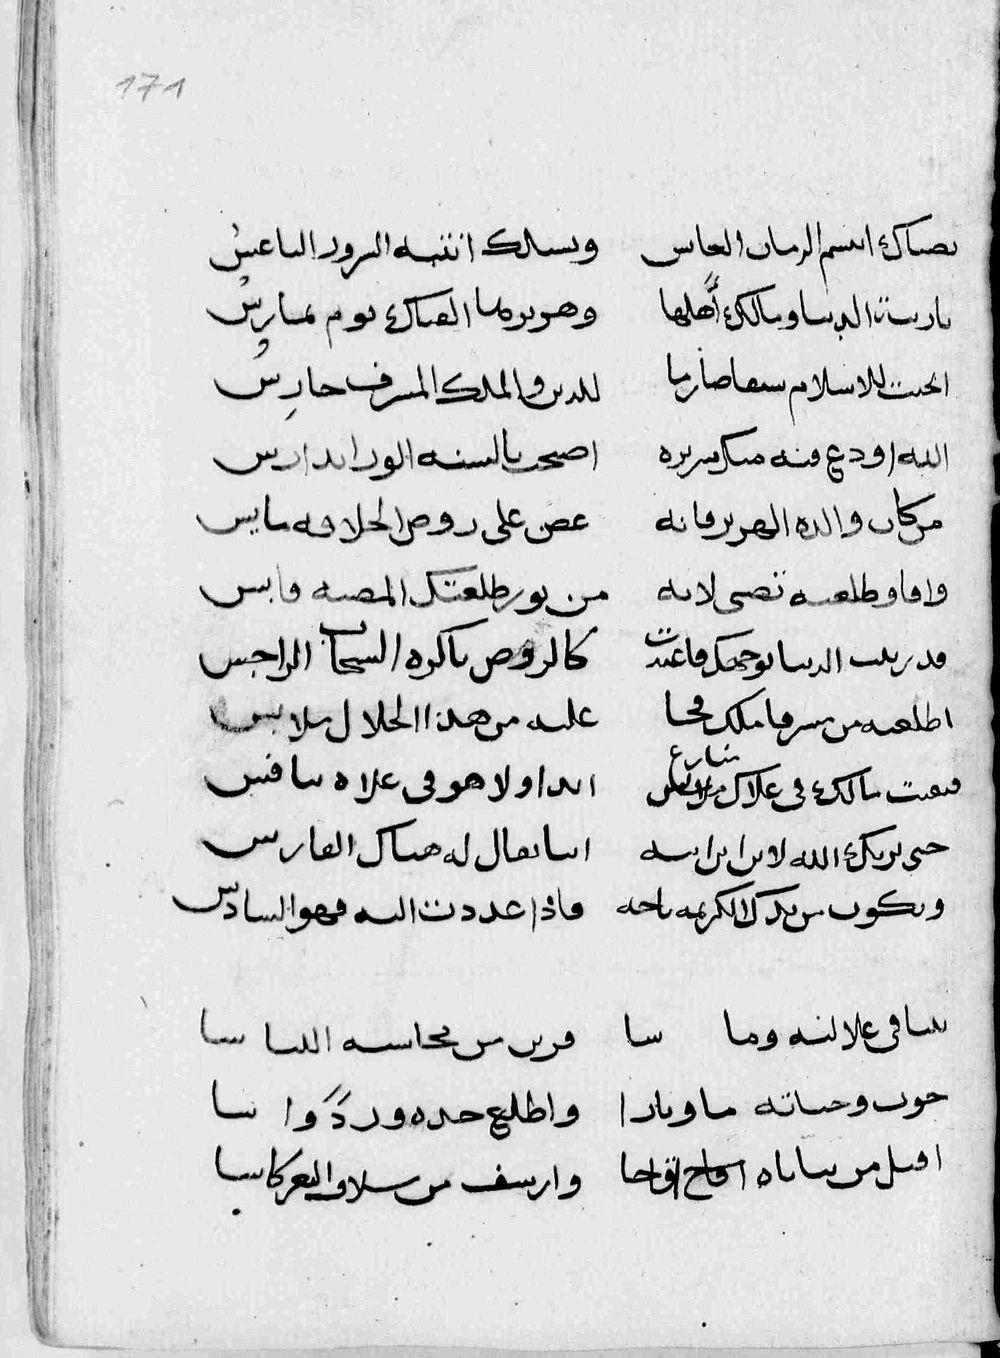 171
بضياك ابتسم الزمان العابس وبسالك انتبه السرور الناعس
يا زينة الدنيا ومالك أهلها وهزبرها الفتاك يوم تمارس
انجبت للاسلام سيفا ضاربا للدين والملك المشرف حارس
الله اودع فيه منك سريره اضحى بالسنة الورا تدارس
من كان والده الهزبر فانه غصن على روض الخلافه مايس
وافا وطلعته تضى لانه من نور طلعتك المضيه قابس
قد زينت الدنيا بوجهك فاغتدت كالروض باكره السحاب الراجس
اطلعته من شرفا ملك عليه من هذا الجلال ملابس
فبقيت مالك في علاك منازع ابدا ولا هو فى علاه منافس
حتى يريك الله لابن ابن ابنه ابنا يقال له هناك الفارس
ويكون من يدك الكريمه تاجه واذا عددت اليه فهو السادس

فى علالته وما سا من محاسنه اللباسا
وجناته ما ونارا واطلع خده وردا وا سا
اقبل من ثناياه اقاحا وارشف من سلاف الثغر كاسا